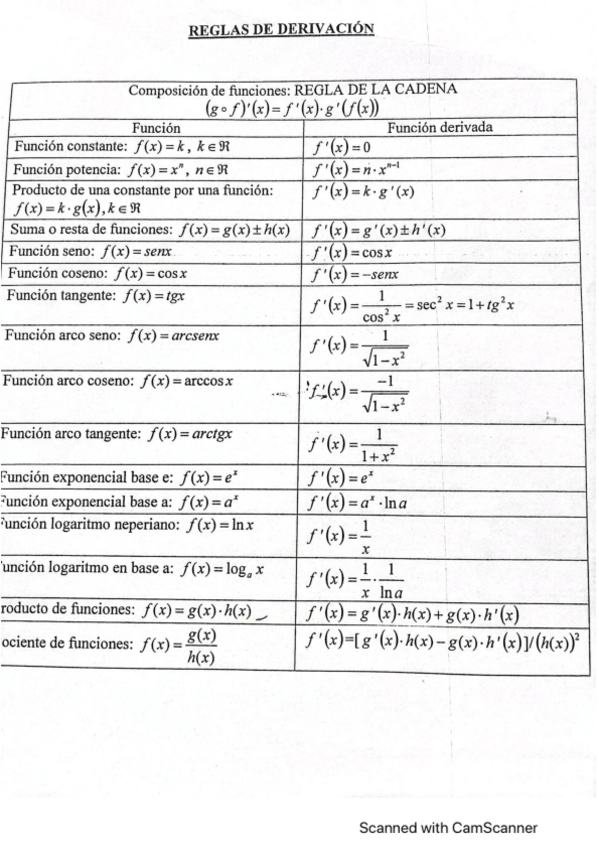 REGLAS DE DERIVACIÓN
Composición de funciones: REGLA DE LA CADENA
(g∘f)'(x)=f'(x)·g'(f(x))
Función Función derivada
Función constante: f(x)=k, k∈ℜ f'(x)=0
Función potencia: f(x)=xⁿ, n∈ℜ f'(x)=n·xⁿ⁻¹
Producto de una constante por una función: f'(x)=k·g'(x)
f(x)=k·g(x),k∈ℜ
Suma o resta de funciones: f(x)=g(x)±h(x) f'(x)=g'(x)±h'(x)
Función seno: f(x)=senx f'(x)=cosx
Función coseno: f(x)=cosx f'(x)=-senx
Función tangente: f(x)=tgx f'(x)=1/cos²x=sec²x=1+tg²x
Función arco seno: f(x)=arcsenx f'(x)=1/√(1-x²)
Función arco coseno: f(x)=arccosx f'(x)=-1/√(1-x²)
Función arco tangente: f(x)=arctgx f'(x)=1/(1+x²)
Función exponencial base e: f(x)=eˣ f'(x)=eˣ
Función exponencial base a: f(x)=aˣ f'(x)=aˣ·lna
Función logaritmo neperiano: f(x)=lnx f'(x)=1/x
unción logaritmo en base a: f(x)=logₐx f'(x)=1/x·1/lna
roducto de funciones: f(x)=g(x)·h(x) f'(x)=g'(x)·h(x)+g(x)·h'(x)
ociente de funciones: f(x)=g(x)/h(x) f'(x)=[g'(x)·h(x)-g(x)·h'(x)]/(h(x))²
Scanned with CamScanner